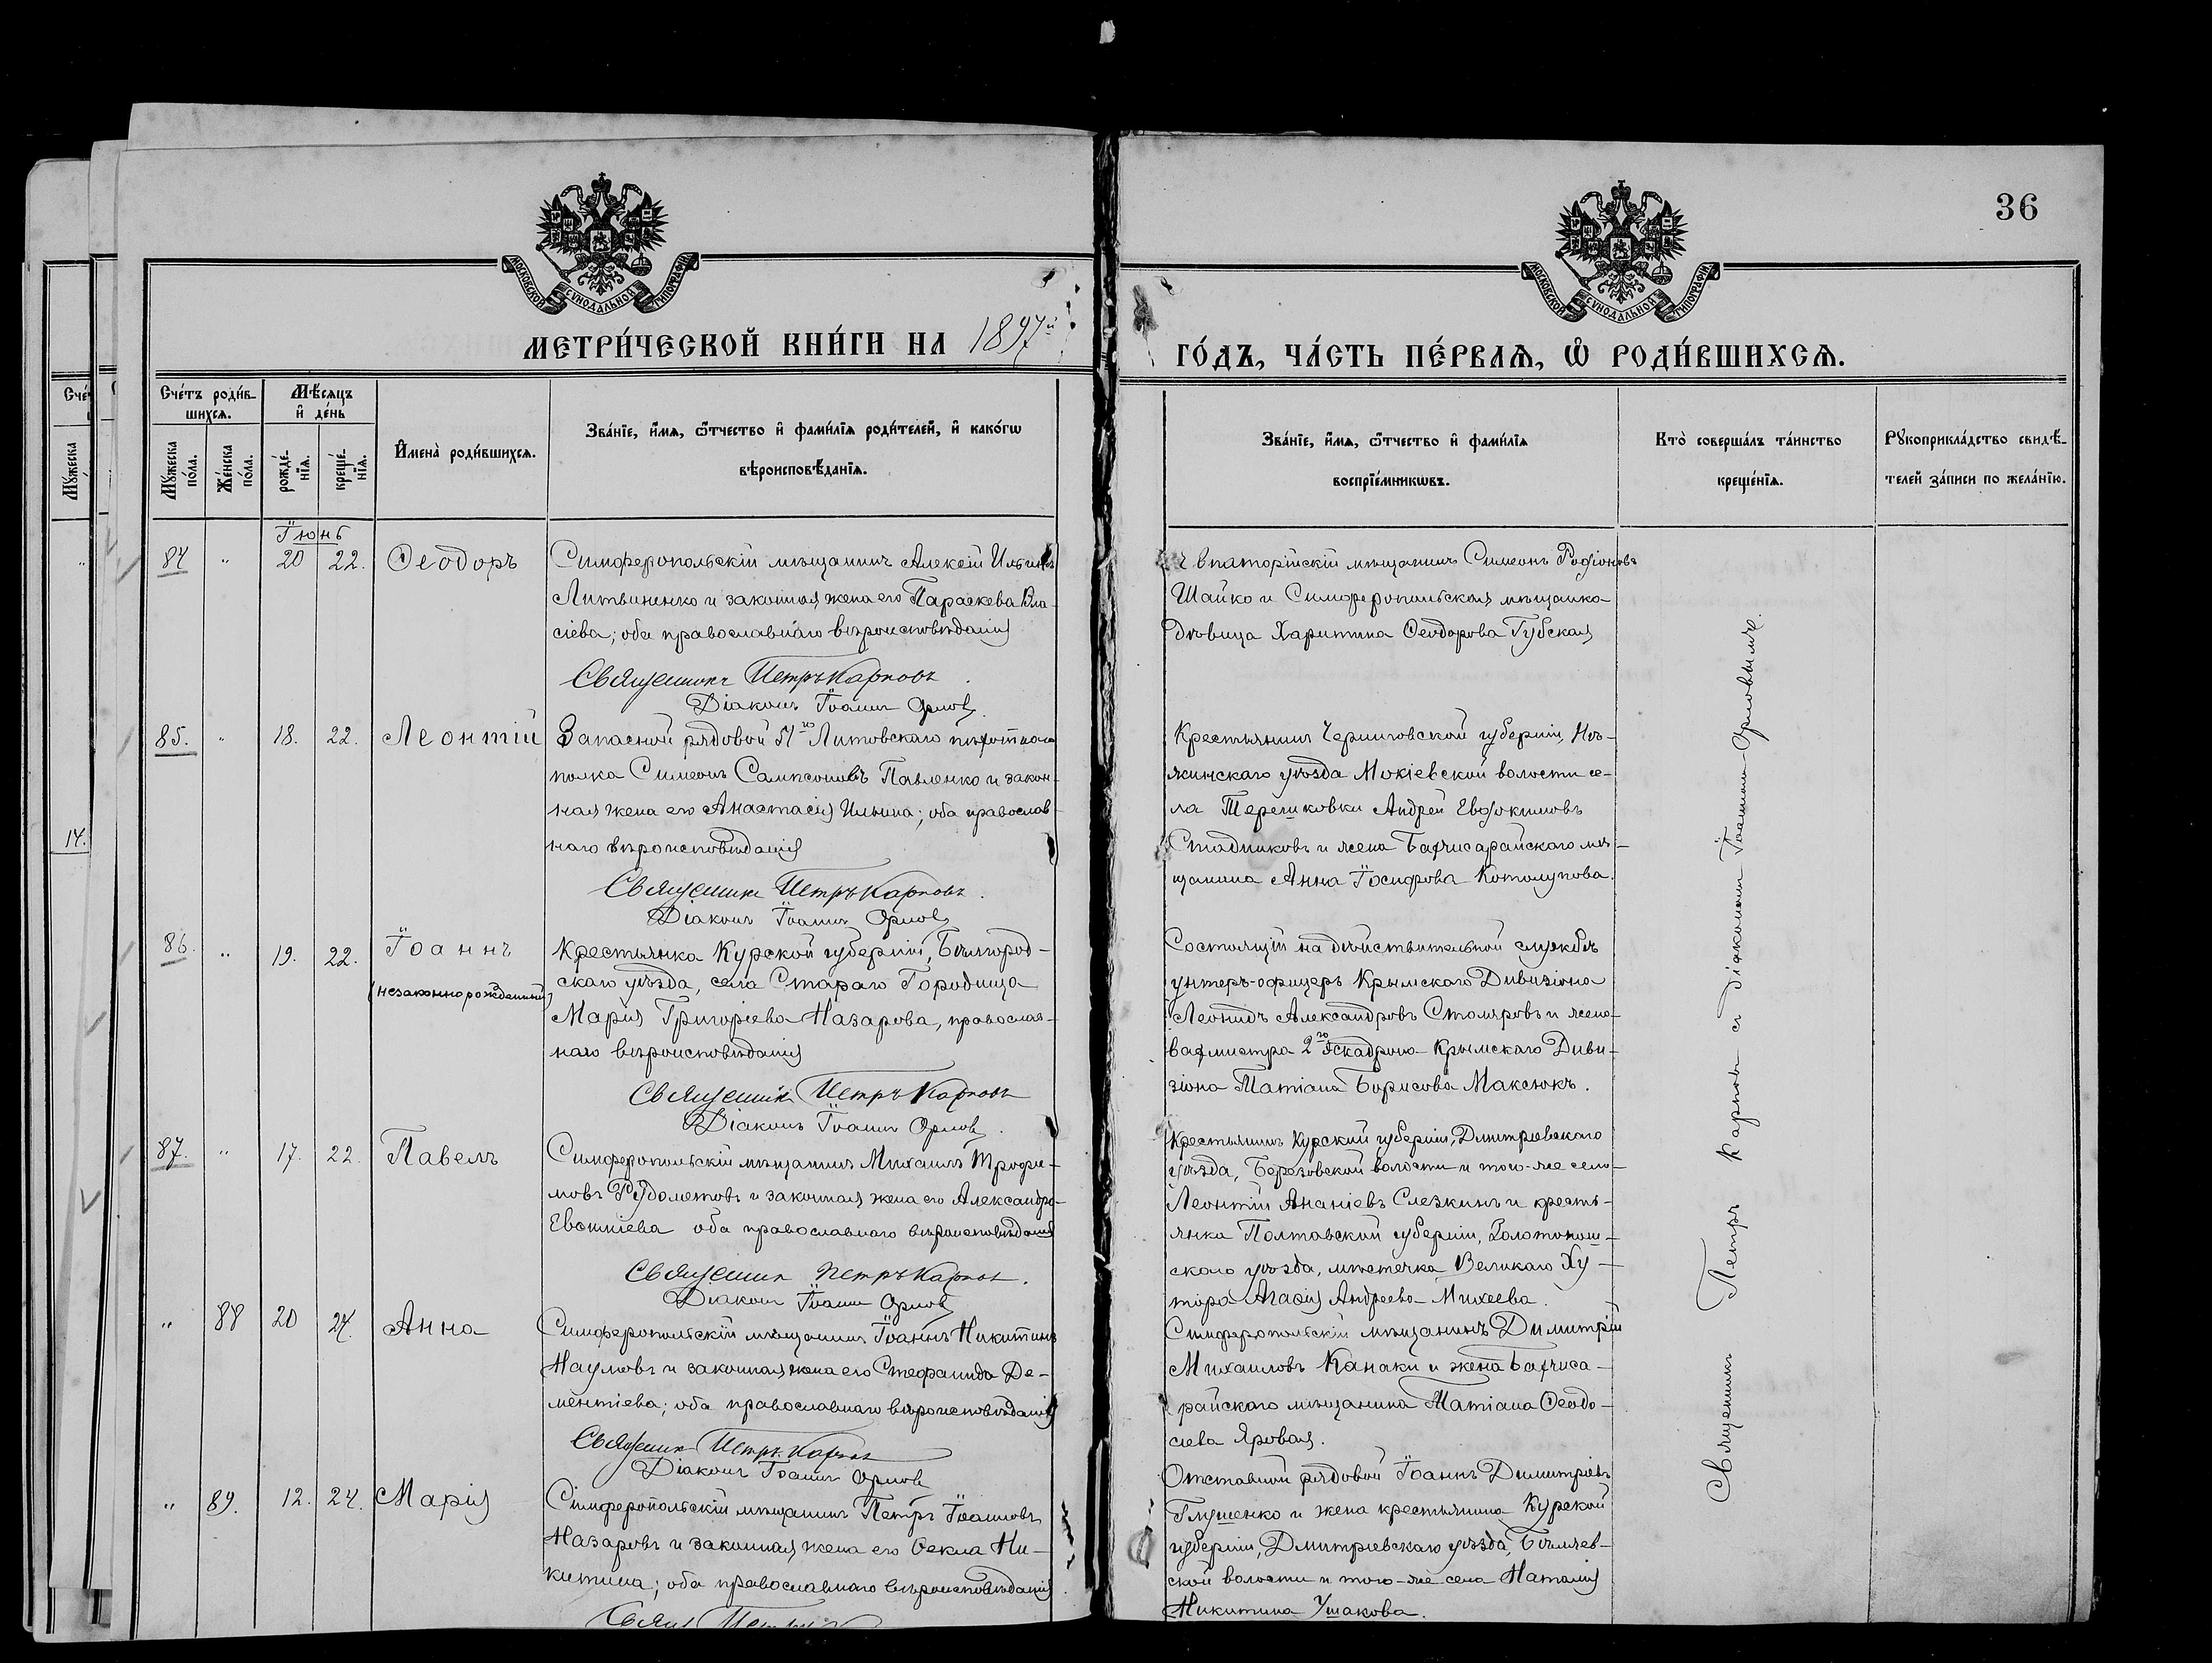 36
МОСКОВСКОЙ СУНОДАЛЬНОЙ ТИПОГРАФІИ
МОСКОВСКОЙ СУНОДАЛЬНОЙ ТИПОГРАФІИ
МЕТРИ́ЧЕСКОЙ КНИ́ГИ НА 1897й
ГО́ДЪ, ЧА́СТЬ ПЕ́РВАѦ, Ѡ҆ РОДИ́ВШИХСѦ.
Сче́тъ роди́в-
шихсѧ.
Мꙋ́жеска по́ла.
Же́нска по́ла.
Мѣ́сѧцъ
и҆ де́нь
рожде́-нїѧ.
креще́-нїѧ.
И҆мена̀ роди́вшихсѧ.
Зва́нїе, и҆́мѧ, ѻ҆́тчество и҆ фами́лїѧ роди́телей, и҆ како́гѡ
вѣроисповѣ́данїѧ.
Зва́нїе, и҆́мѧ, ѻ҆́тчество и҆ фами́лїѧ
воспрїе́мникѡвъ.
Кто̀ соверша́лъ та́инство
креще́нїѧ.
Рꙋкоприкла́дство свидѣ́-
телей за́писи по жела́нїю.
Мꙋ́жеска
14.
Іюнь
84 " 20 22. Ѳеодоръ
Симферопольскій мѣщанинъ Алексій Ильинъ
Литвиненко и законная жена его Параскева Вла-
сіева; оба православнаго вѣроисповѣданія
Священникъ Петръ Карповъ.
Діаконъ Іоаннъ Орловъ.
Евпаторійскій мѣщанинъ Симеонъ Родіоновъ
Шайко и Симферопольская мѣщанка
дѣвица Харитина Ѳеодорова Губская
85. " 18. 22. Леонтій
Запасной рядовой 51го Литовскаго пѣхотнаго
полка Симеонъ Сампсоновъ Павленко и закон-
ная жена его Анастасія Ильина; оба православ-
наго вѣроисповѣданія
Священникъ Петръ Карповъ.
Діаконъ Іоаннъ Орловъ
Крестьянинъ Черниговской губерніи, Нѣ-
жинскаго уѣзда Мокіевской волости се-
ла Терешковки Андрей Евдокимовъ
Стадниковъ и жена Бахчисарайскаго мѣ-
щанина Анна Іосифова Котолупова.
86. " 19. 22. Іоаннъ
(незаконнорожденный)
Крестьянка Курской губерніи, Бѣлгород-
скаго уѣзда, села Стараго Городища
Марія Григоріева Назарова, православ-
наго вѣроисповѣданія
Священникъ Петръ Карповъ
Діаконъ Іоаннъ Орловъ.
Состоящій на дѣйствительной службѣ
унтеръ-офицеръ Крымскаго Дивизіона
Леонидъ Александровъ Столяровъ и жена
вахмистра 2го Эскадрона Крымскаго Диви-
зіона Татіана Борисова Максюкъ.
87. " 17. 22. Павелъ
Симферопольскій мѣщанинъ Михаилъ Трофи-
мовъ Рудометовъ и законная жена его Александра
Евсигніева оба православнаго вѣроисповѣданія
Священникъ Петръ Карповъ.
Діаконъ Іоаннъ Орловъ
Крестьянинъ Курской губерніи, Дмитріевскаго
уѣзда, Березовской волости и того-же села
Леонтій Ананіевъ Слезкинъ и кресть-
янка Полтавской губерніи, Золотонош-
скаго уѣзда, мѣстечка Великаго Ху-
тора Агафія Андреева Михеева.
" 88 20 24. Анна
Симферопольскій мѣщанинъ Іоаннъ Никитинъ
Наумовъ и законная жена его Стефанида Де-
ментіева; оба православнаго вѣроисповѣданія
Священникъ Петръ Карповъ
Діаконъ Іоаннъ Орловъ
Симферопольскій мѣщанинъ Димитрій
Михаиловъ Канаки и жена Бахчиса-
райскаго мѣщанина Татіана Ѳеодо-
сіева Яровая.
" 89. 12. 24. Марія
Симферопольскій мѣщанинъ Петръ Іоанновъ
Назаровъ и законная жена его Ѳекла Ни-
китина; оба православнаго вѣроисповѣданія
Отставной рядовой Іоаннъ Димитріевъ
Глушенко и жена крестьянина Курской
губерніи, Дмитріевскаго уѣзда,
ской волости и того-же села Наталія
Никитина Ушакова.
Священникъ Петръ Карповъ съ Діакономъ Іоанномъ Орловымъ.